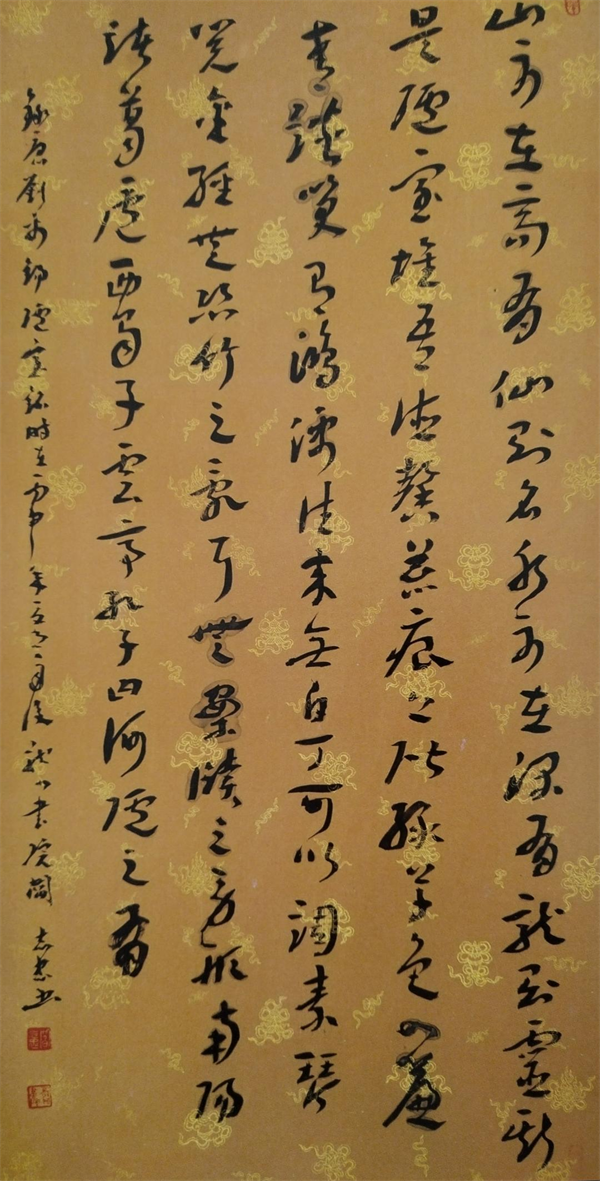 山不在高有仙則名水不在深有龍則靈斯
是陋室惟吾德馨苔痕上階綠草色入簾
青談笑有鴻儒往來無白丁可以調素琴
閱金經無絲竹之亂耳無案牘之勞形南陽
諸葛廬西蜀子雲亭孔子曰何陋之有
錄唐劉禹錫陋室銘時在丙申年五月龍書院志忠書